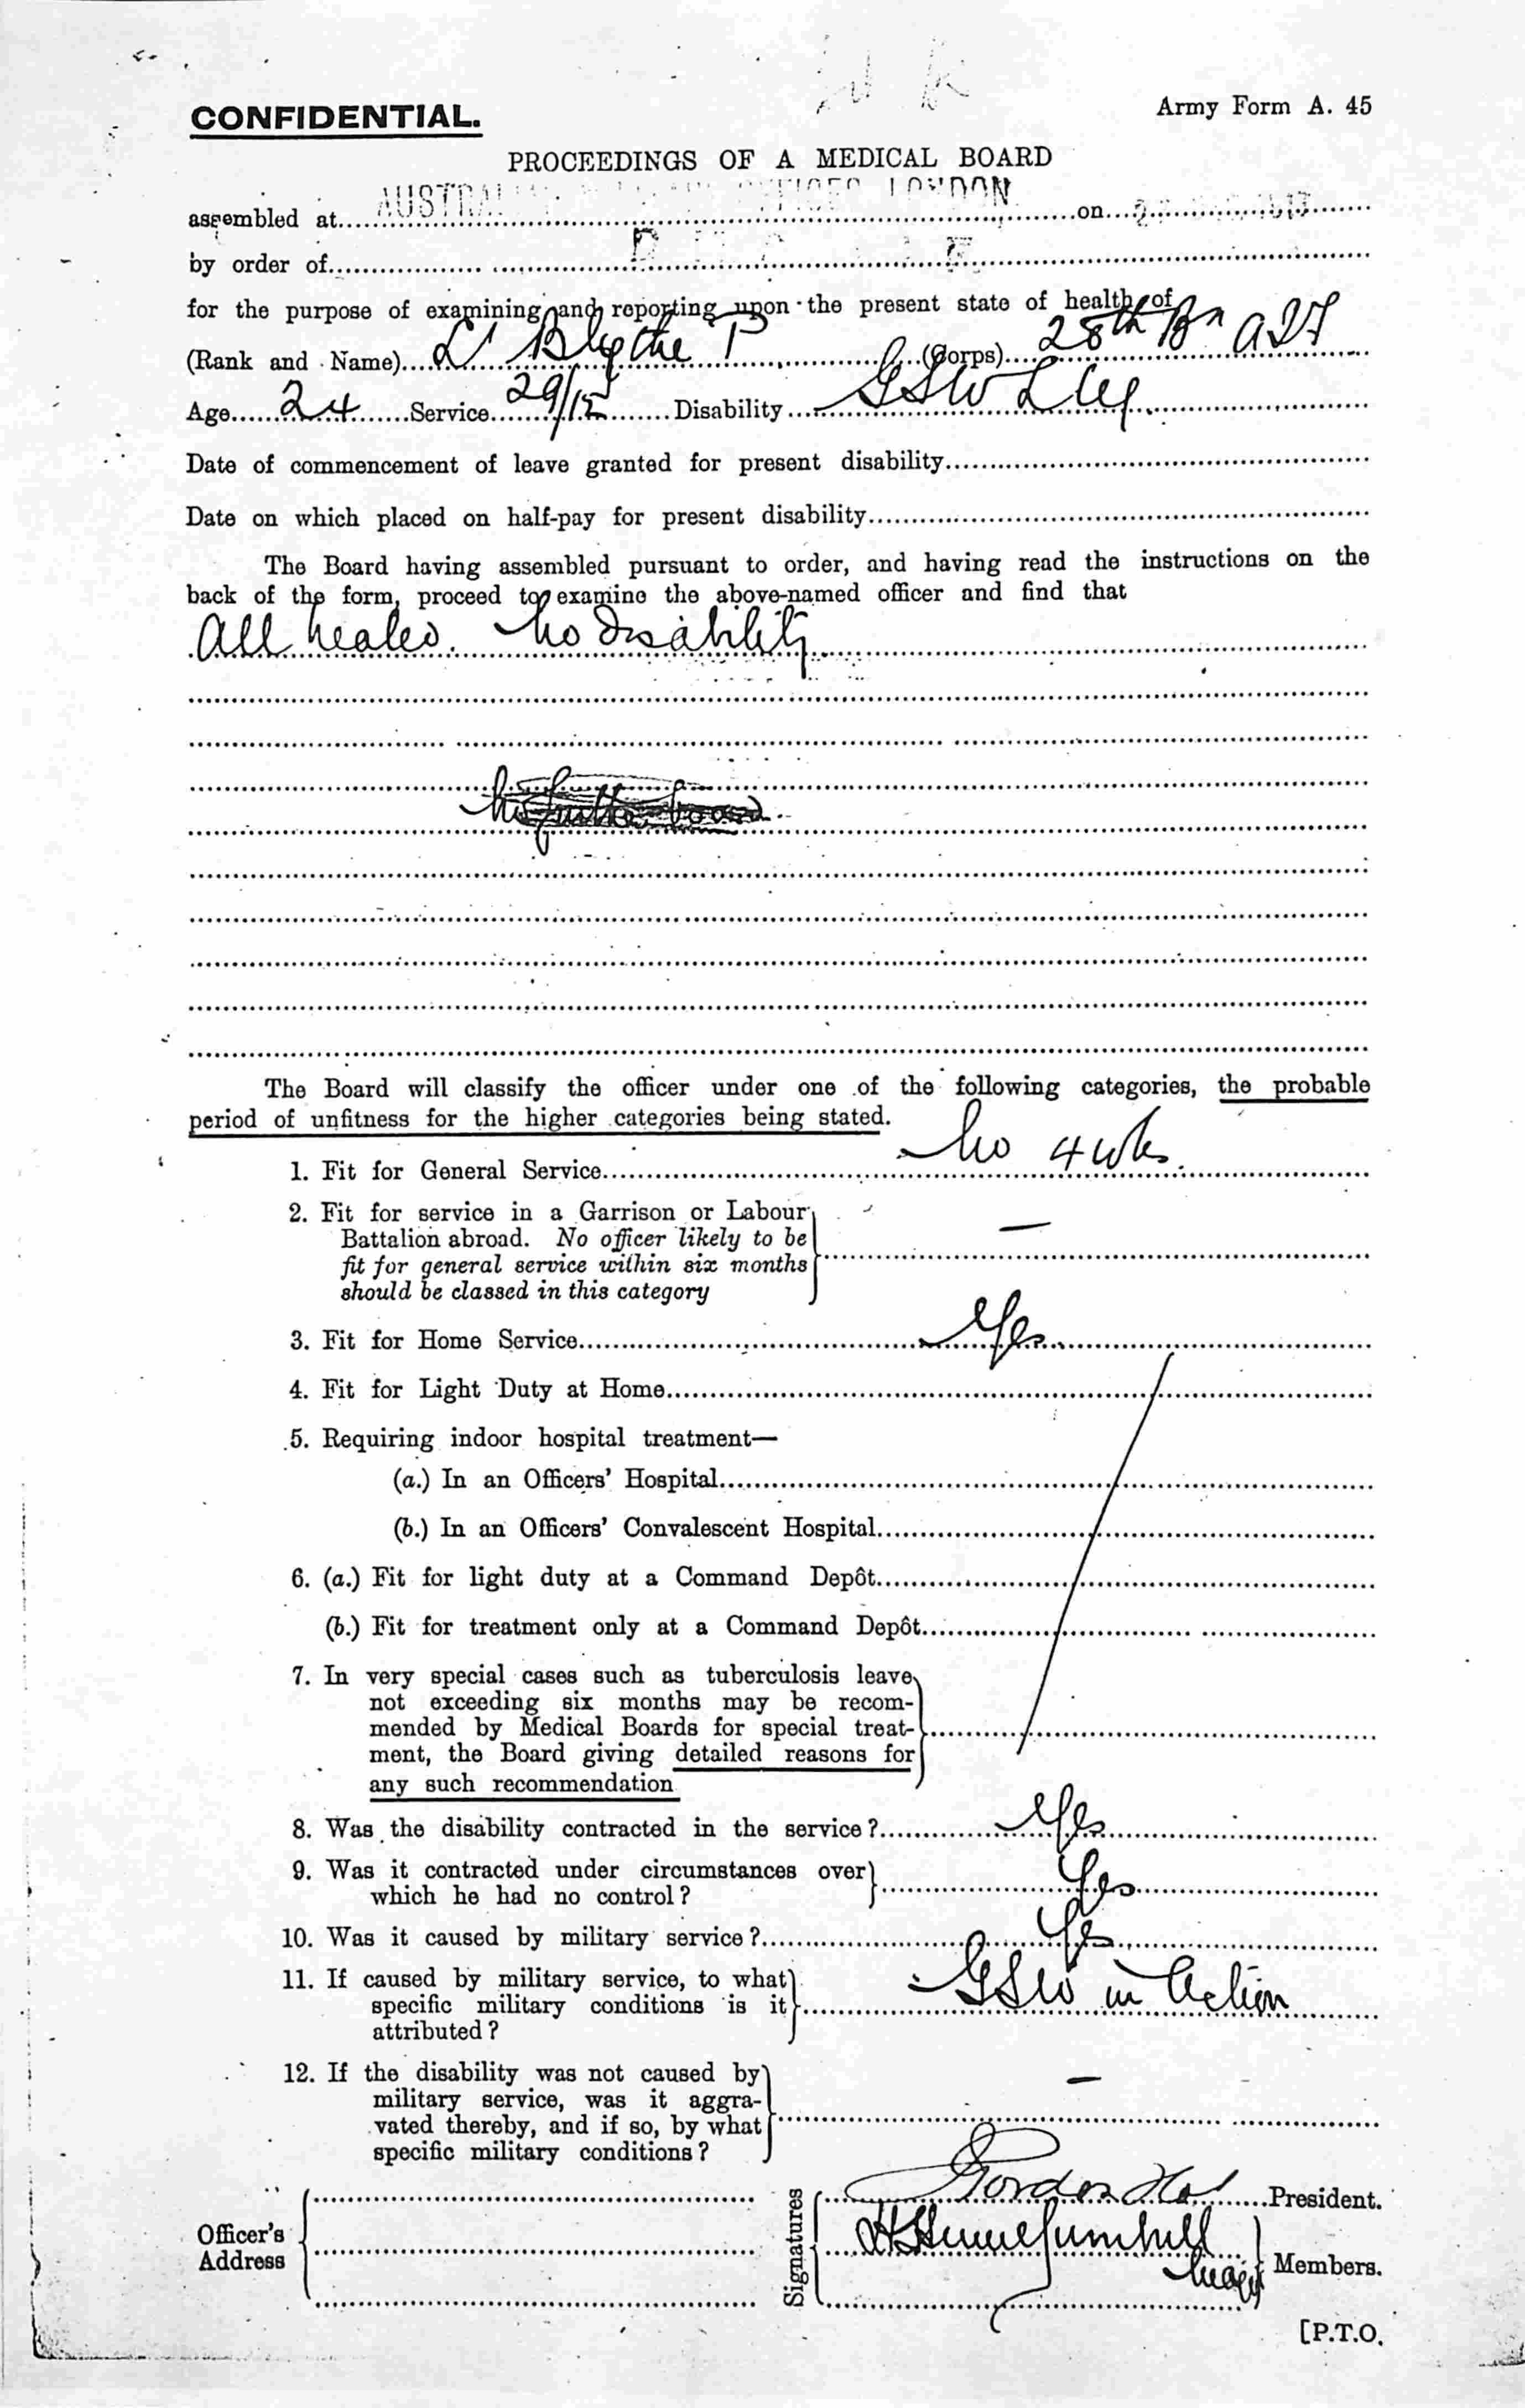 CONFIDENTIAL.
Army Form A. 45
PROCEEDINGS OF A MEDICAL BOARD
assembled at LONDON on
by order of
for the purpose of examining and reporting upon the present state of health of
(Rank and Name) Lt Blythe P (Corps) 28th Bn AIF
Age 24 Service 29/12 Disability GSW L leg.
Date of commencement of leave granted for present disability
Date on which placed on half-pay for present disability
The Board having assembled pursuant to order, and having read the instructions on the
back of the form, proceed to examine the above-named officer and find that
All healed. No disability
The Board will classify the officer under one of the following categories, the probable
period of unfitness for the higher categories being stated.
1. Fit for General Service No 4 wks.
2. Fit for service in a Garrison or Labour
Battalion abroad. No officer likely to be
fit for general service within six months
should be classed in this category —
3. Fit for Home Service Yes
4. Fit for Light Duty at Home
5. Requiring indoor hospital treatment—
(a.) In an Officers' Hospital
(b.) In an Officers' Convalescent Hospital
6. (a.) Fit for light duty at a Command Depôt
(b.) Fit for treatment only at a Command Depôt
7. In very special cases such as tuberculosis leave
not exceeding six months may be recom-
mended by Medical Boards for special treat-
ment, the Board giving detailed reasons for
any such recommendation
8. Was the disability contracted in the service? Yes
9. Was it contracted under circumstances over
which he had no control? Yes
10. Was it caused by military service? Yes
11. If caused by military service, to what
specific military conditions is it
attributed? GSW in Action
12. If the disability was not caused by
military service, was it aggra-
vated thereby, and if so, by what
specific military conditions? —
Officer's
Address
Signatures
Gordon President.
Members.
[P.T.O.